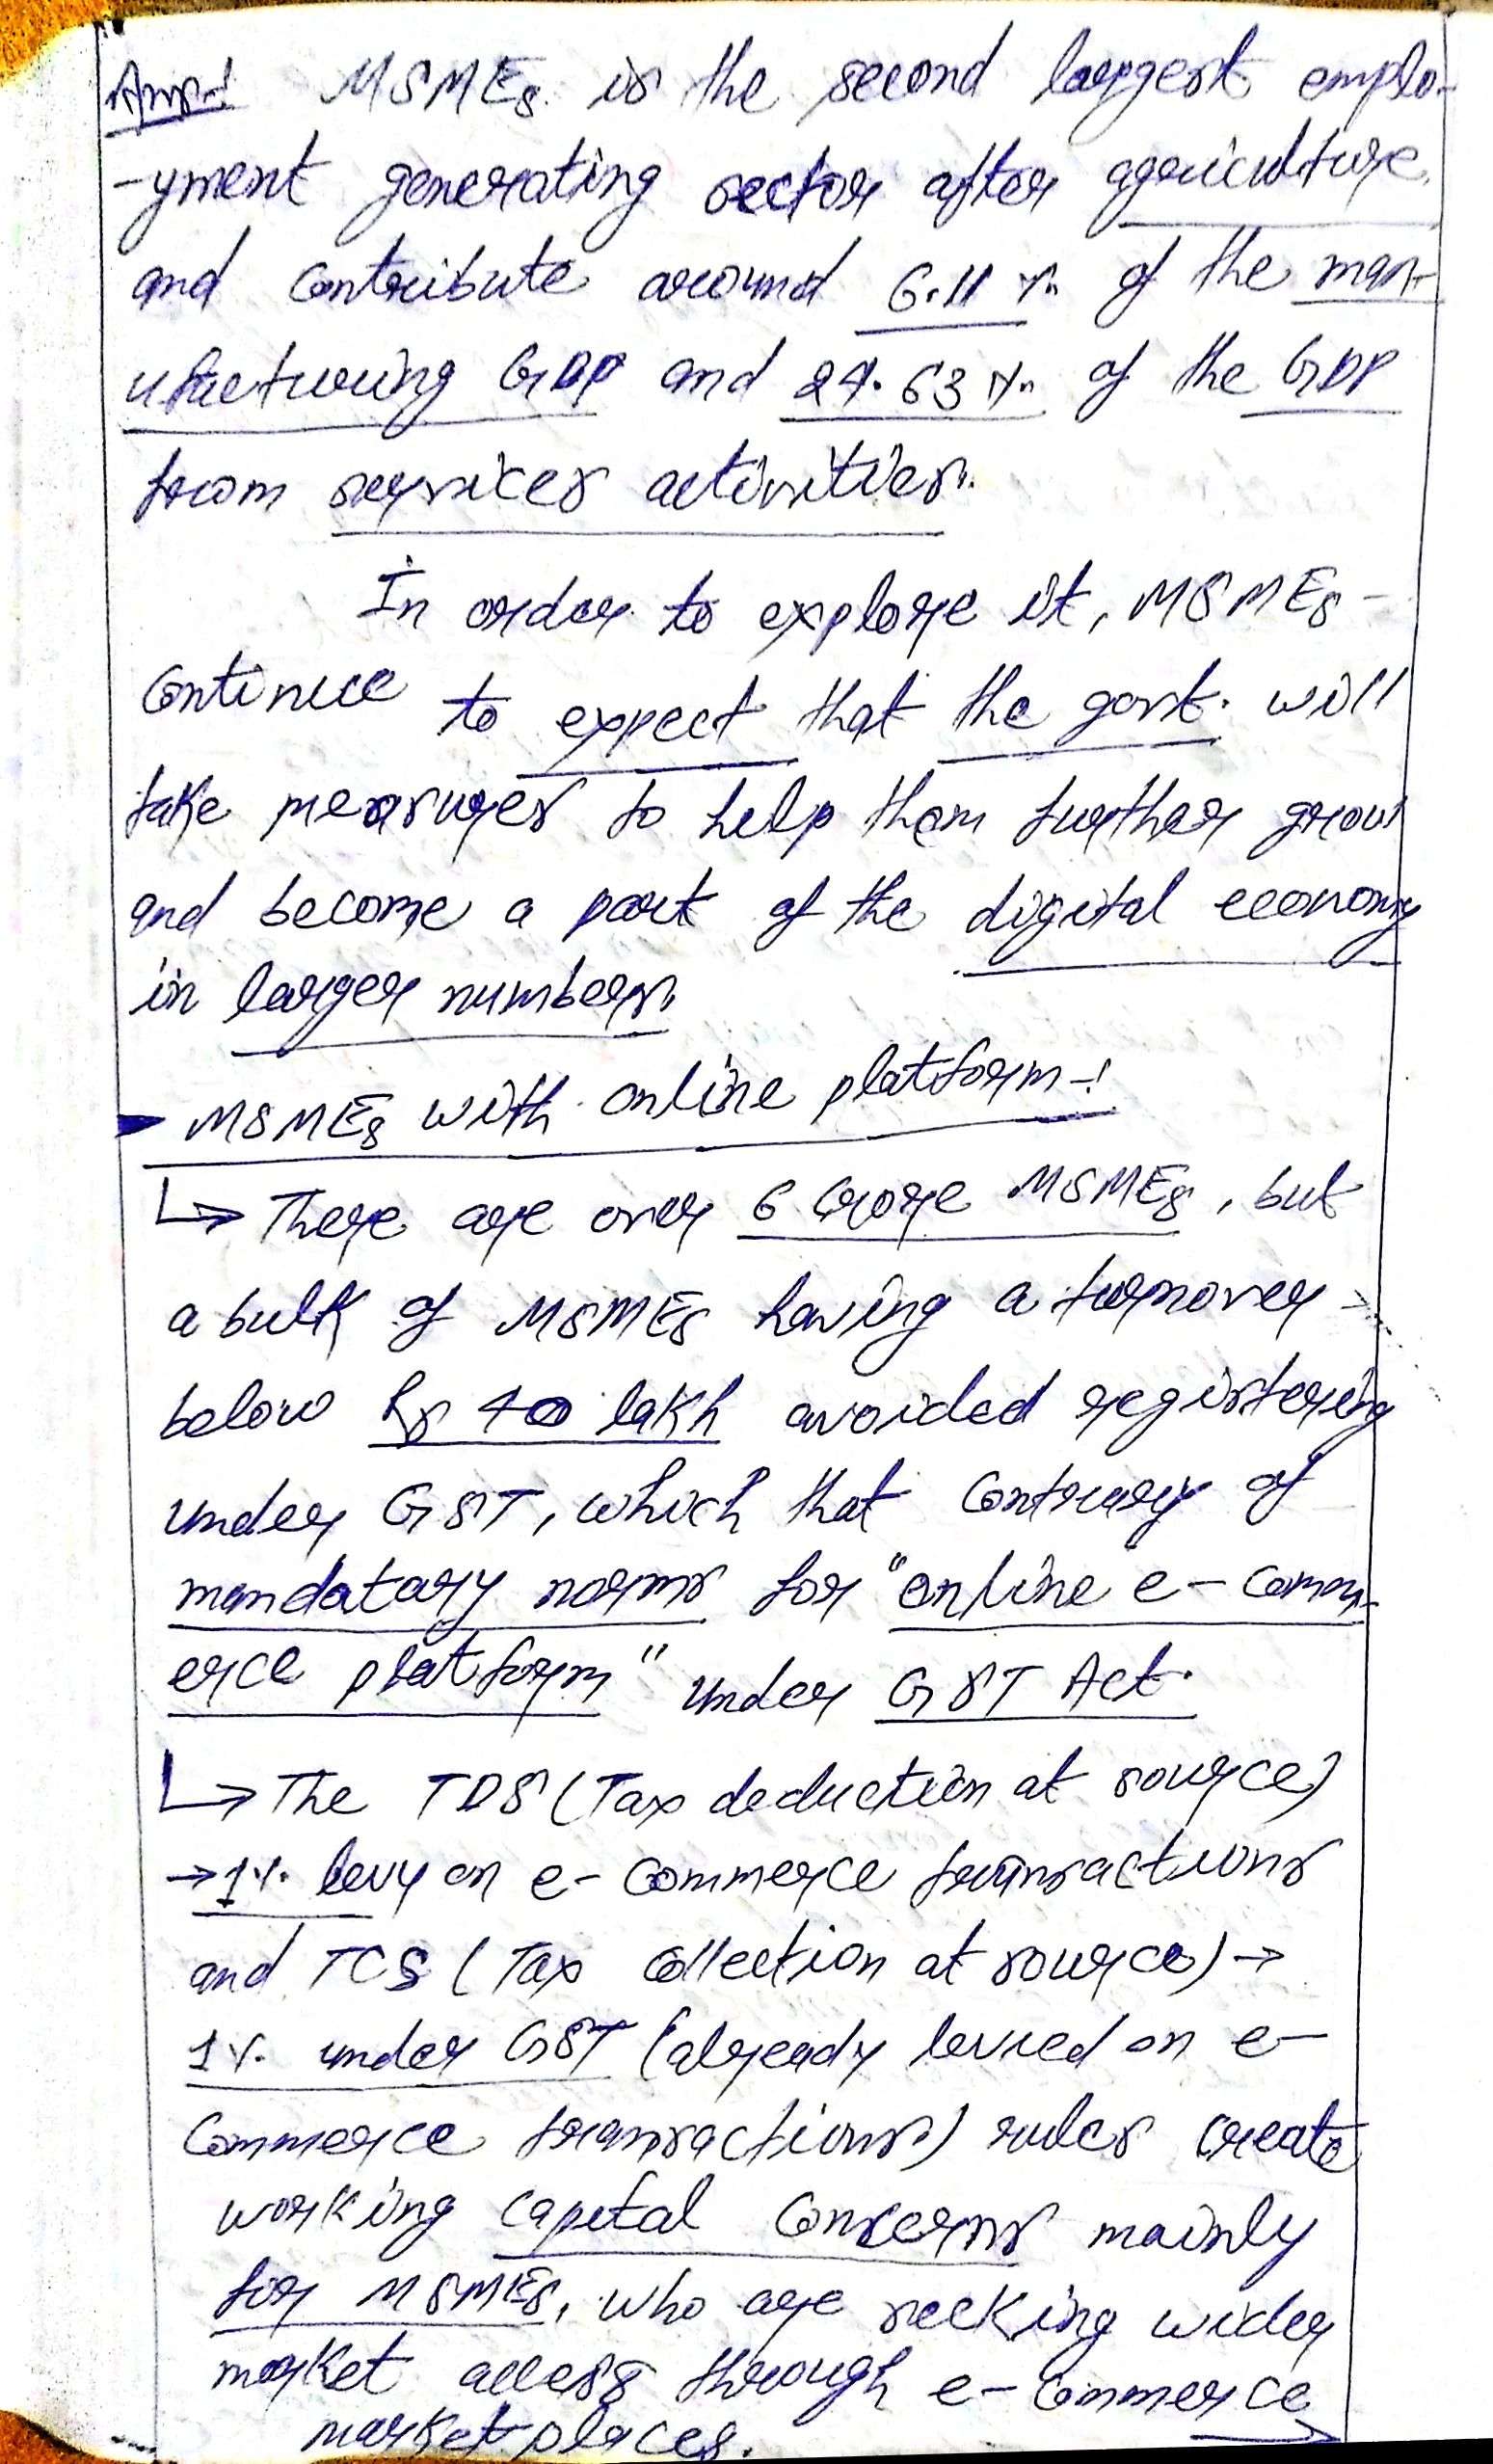 Ans:- MSMEs is the second largest emplo-
-yment generating sector after agriculture
and contribute around 6.11 % of the man-
ufacturing GDP and 24.63 % of the GDP
from services activities.
In order to explore it, MSMEs
continue to expect that the govt. will
take measures to help them further grow
and become a part of the digital economy
in larger numbers.
MSMEs with online platform-:
↳ There are over 6 crore MSMEs, but
a bulk of MSMEs having a turnover
below Rs 40 lakh avoided registering
under GST, which that contrary of
mandatary norms for "online e-comm-
erce platform" under GST Act.
↳ The TDS (Tax deduction at source)
→ 1%. levy on e-commerce transactions
and TCS (Tax collection at source) →
1%. under GST (already levied on e-
commerce transactions) rules create
working capital concerns mainly
for MSMEs, who are seeking wider
market access through e-commerce
marketplaces. →